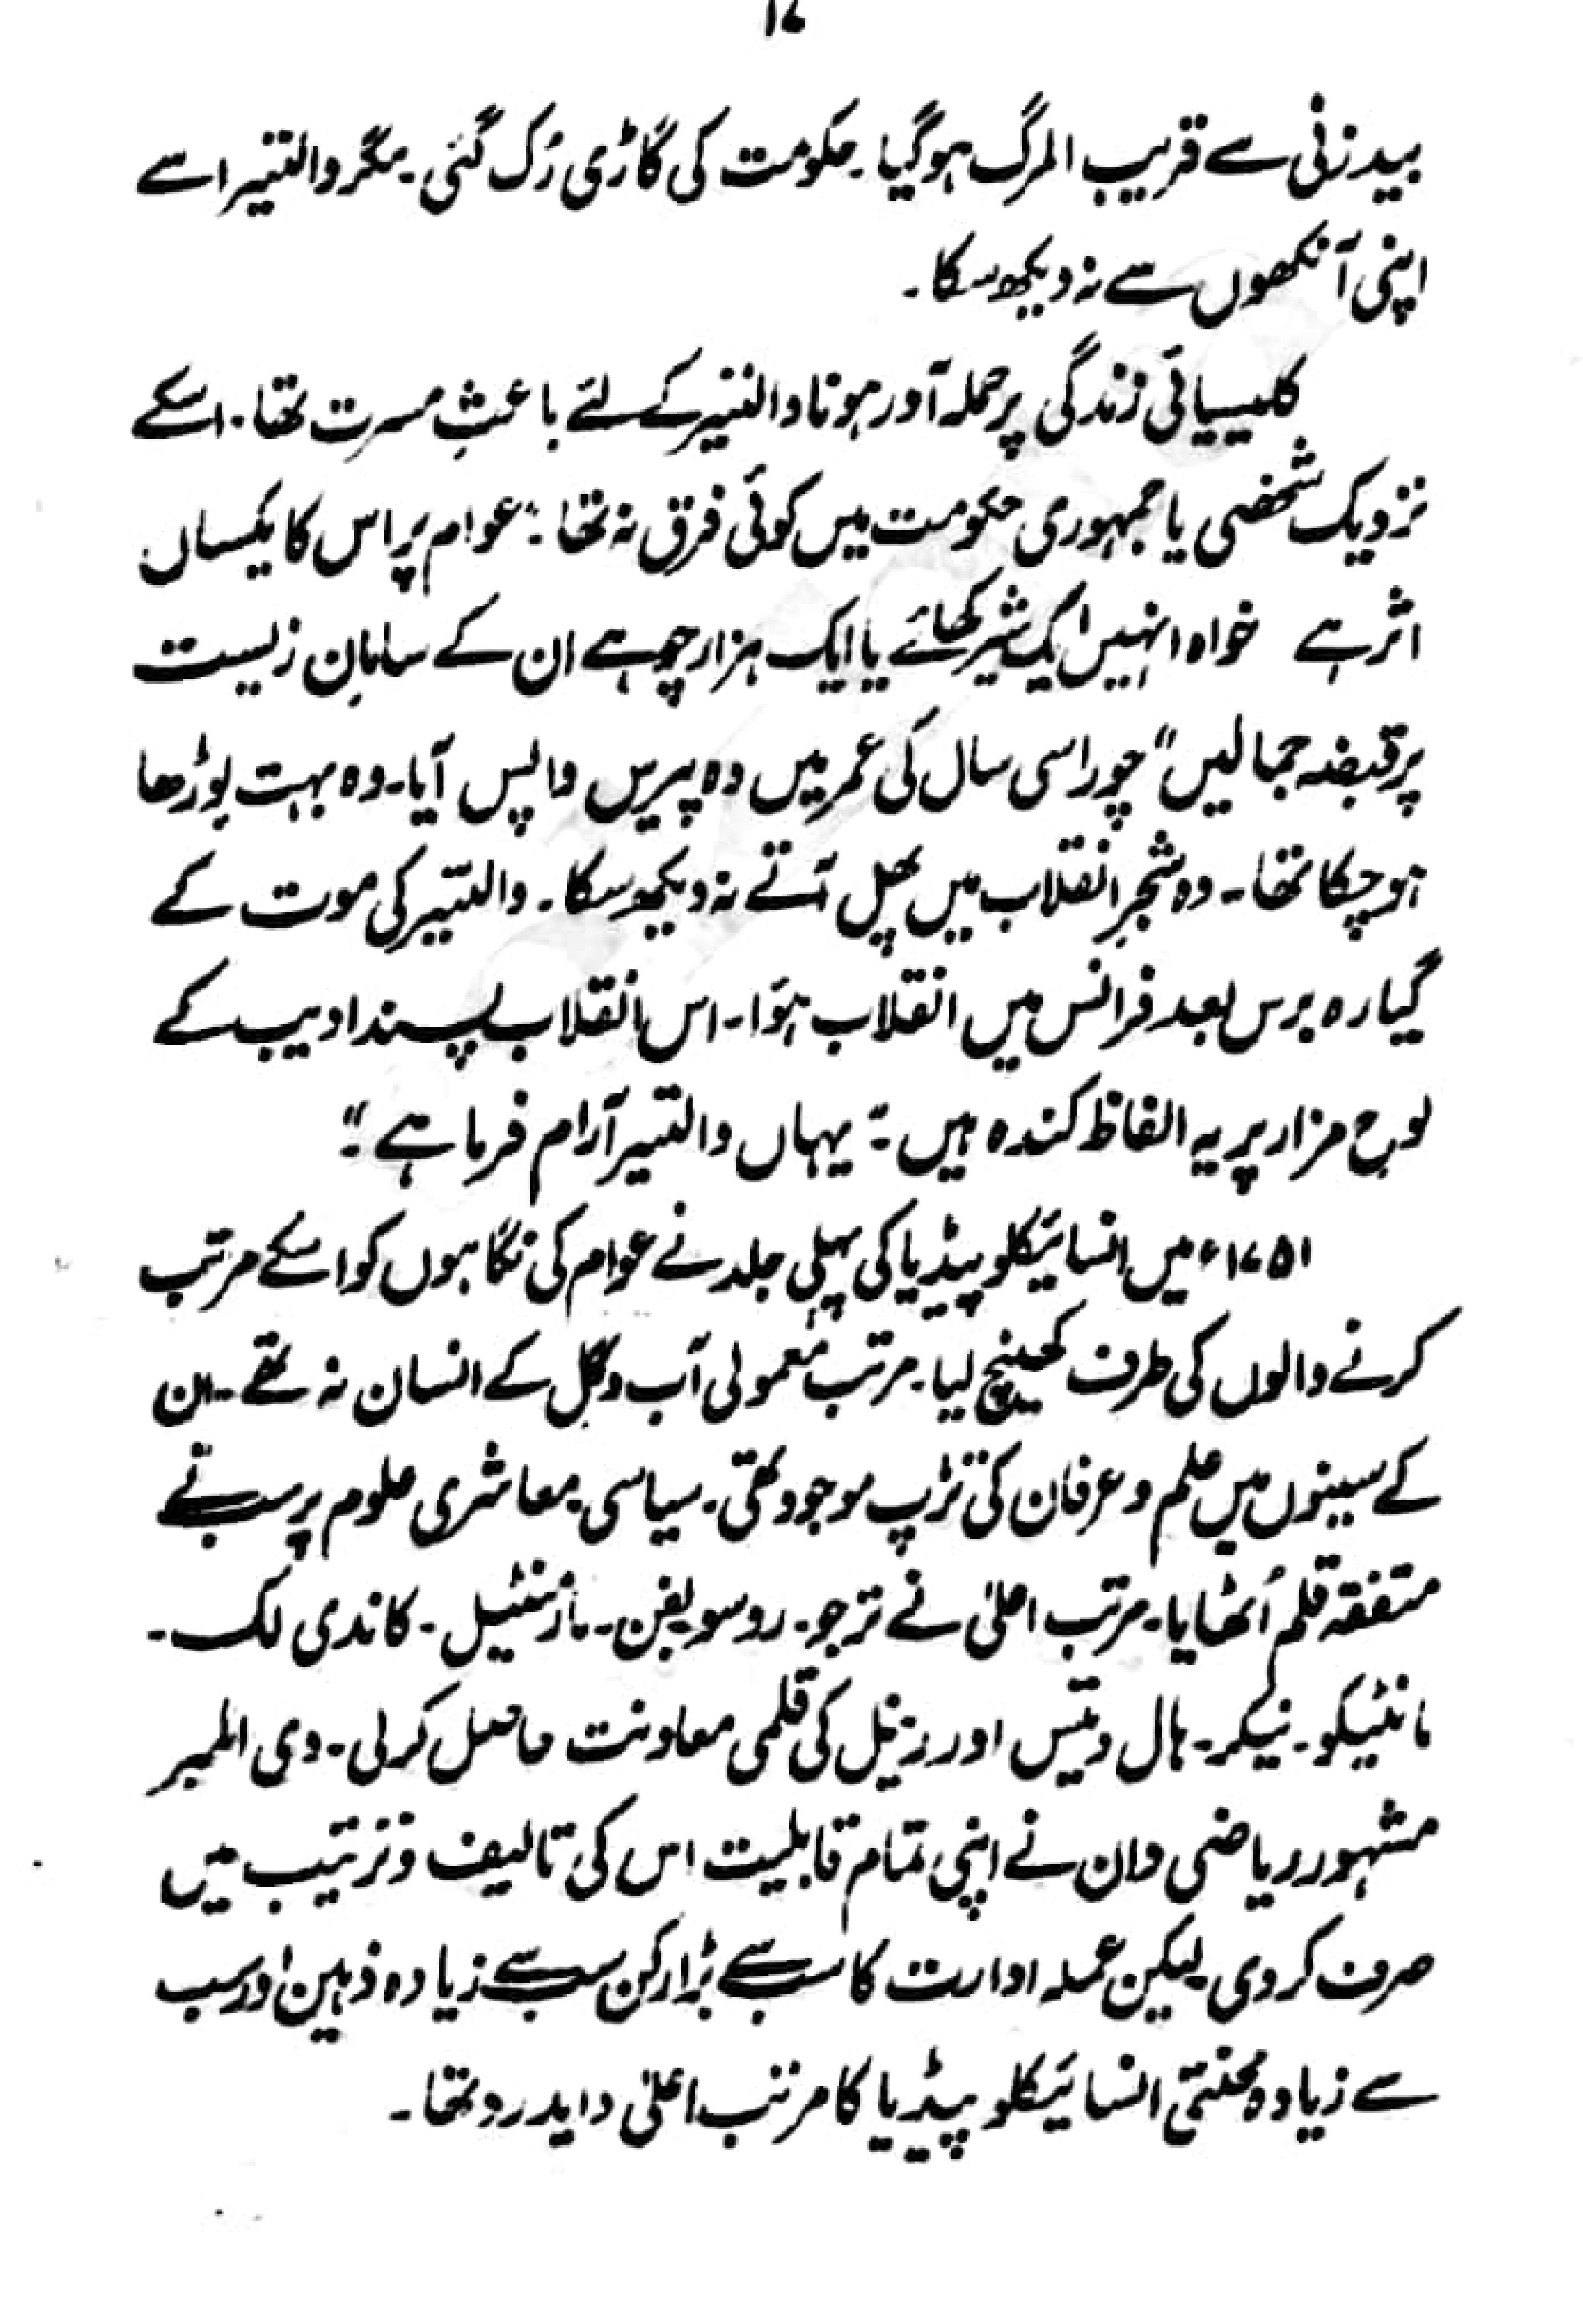 ۱۷
بیدزنی سے قریب المرگ ہوگیا۔ حکومت کی گاڑی رُک گئی۔ مگر والتئیر اسے
اپنی آنکھوں سے نہ دیکھ سکا۔
کلیسیائی زندگی پر حملہ آور ہونا والتئیر کے لئے باعثِ مسرت تھا۔ اسکے
نزدیک شخصی یا جمہوری حکومت میں کوئی فرق نہ تھا: "عوام پر اس کا یکساں
اثر ہے خواہ انہیں ایک شیر کھائے یا ایک ہزار چوہے ان کے سامانِ زیست
پر قبضہ جما لیں" چوراسی سال کی عمر میں وہ پیرس واپس آیا۔ وہ بہت بوڑھا
ہوچکا تھا۔ وہ شجرِ انقلاب میں پھل آتے نہ دیکھ سکا۔ والتئیر کی موت کے
گیارہ برس بعد فرانس میں انقلاب ہؤا۔ اس انقلاب پسند ادیب کے
لوحِ مزار پر یہ الفاظ کندہ ہیں۔ "یہاں والتئیر آرام فرما ہے"۔
۱۷۵۱ء میں انسائیکلو پیڈیا کی پہلی جلد نے عوام کی نگاہوں کو اسکے مرتب
کرنے والوں کی طرف کھینچ لیا۔ مرتب معمولی آب و گِل کے انسان نہ تھے۔ ان
کے سینوں میں علم و عرفان کی تڑپ موجود تھی۔ سیاسی۔ معاشری علوم پر سب نے
متفقہ قلم اُٹھایا۔ مرتب اعلیٰ نے ترجو۔ روسو۔ بفن۔ مازمنٹیل۔ کاندی لک۔
مانٹیکو۔ نیکر۔ ہال وتیس اور رنیل کی قلمی معاونت حاصل کرلی۔ دی المبیر
مشہور ریاضی دان نے اپنی تمام قابلیت اس کی تالیف و ترتیب میں
صرف کردی۔ لیکن عملہ ادارت کا سب سے بڑا رکن سب سے زیادہ ذہین اور سب
سے زیادہ محنتی انسائیکلو پیڈیا کا مرتب اعلیٰ دایدرو تھا۔